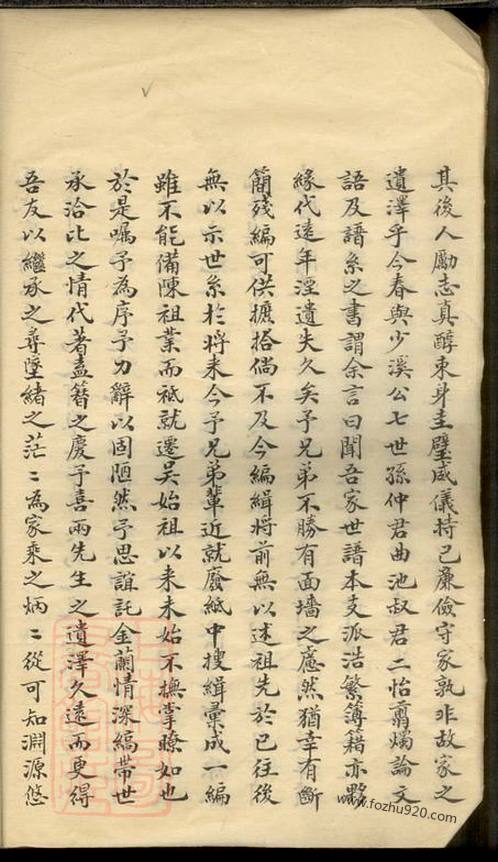 其後人勵志真醇束身圭璧咸儀持己廉儉守家孰非故家之
遺澤乎今春與少溪公七世孫仲君曲池叔君二怡剪燭論文
語及譜系之書謂余言曰聞吾家世譜本支派浩繁簿籍亦夥
緣代遠年湮遺失久矣予兄弟不勝有面墻之慮然猶幸有斷
簡殘編可供摭拾倘不及今編緝將前無以述祖先於已往後
無以示世系於將来今予兄弟輩近就廢紙中搜緝彙成一編
雖不能備陳祖業而祗就遷吳始祖以来未始不撫掌瞭如也
於是囑予為序予力辭以固陋然予思誼託金蘭情深縞帶世
承洽比之情代著盍簪之慶予喜兩先生之遺澤久遠而更得
吾友以繼承之尋墜緒之茫〻為家乘之炳〻從可知淵源悠
www.fozhu920.com